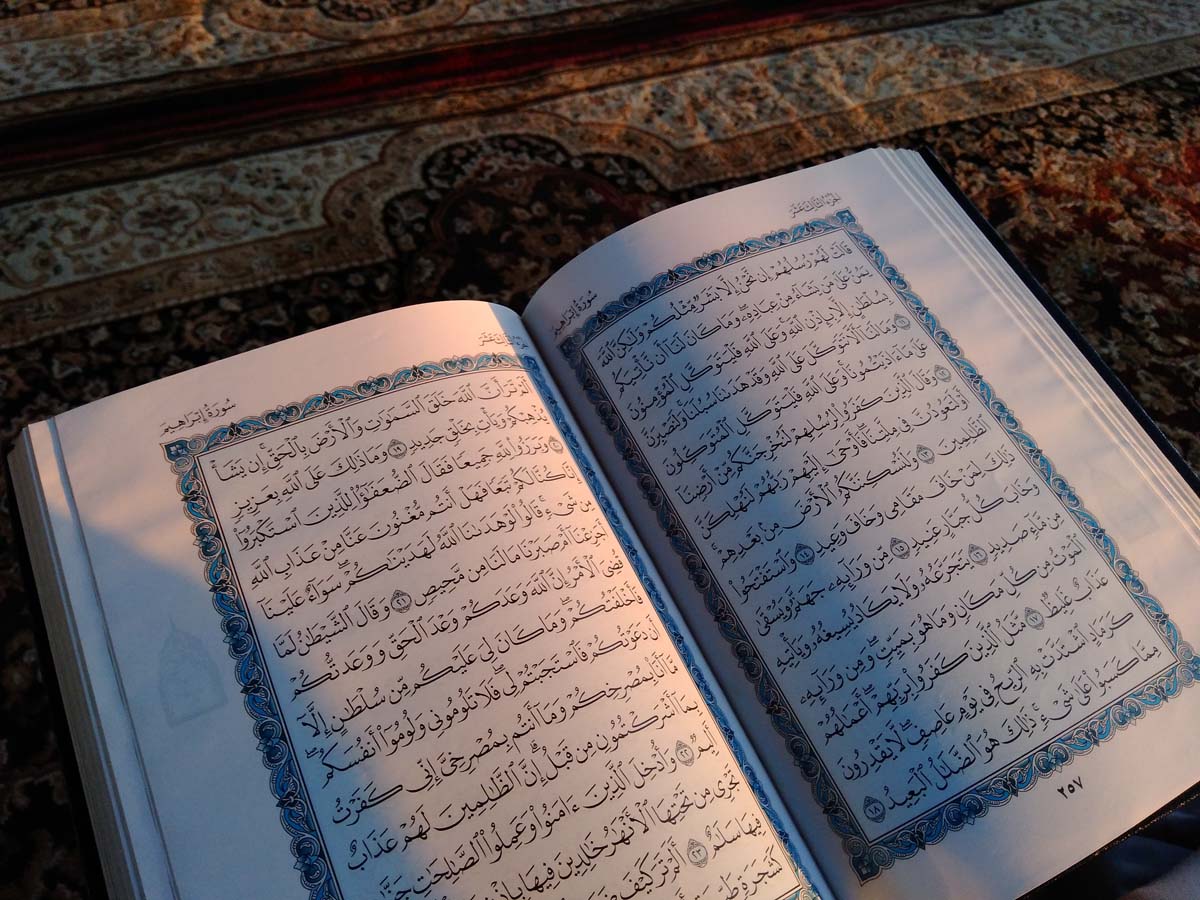 الجزء الثالث عشر
سورة إبراهيم
قَالَتْ لَهُمْ رُسُلُهُمْ إِن نَّحْنُ إِلَّا بَشَرٌ مِّثْلُكُمْ وَلَٰكِنَّ ٱللَّهَ
يَمُنُّ عَلَىٰ مَن يَشَآءُ مِنْ عِبَادِهِۦ وَمَا كَانَ لَنَآ أَن نَّأْتِيَكُم
بِسُلْطَٰنٍ إِلَّا بِإِذْنِ ٱللَّهِ وَعَلَى ٱللَّهِ فَلْيَتَوَكَّلِ ٱلْمُؤْمِنُونَ
١١ وَمَا لَنَآ أَلَّا نَتَوَكَّلَ عَلَى ٱللَّهِ وَقَدْ هَدَىٰنَا سُبُلَنَا وَلَنَصْبِرَنَّ
عَلَىٰ مَآ ءَاذَيْتُمُونَا وَعَلَى ٱللَّهِ فَلْيَتَوَكَّلِ ٱلْمُتَوَكِّلُونَ
١٢ وَقَالَ ٱلَّذِينَ كَفَرُوا۟ لِرُسُلِهِمْ لَنُخْرِجَنَّكُم مِّنْ أَرْضِنَآ
أَوْ لَتَعُودُنَّ فِى مِلَّتِنَا فَأَوْحَىٰٓ إِلَيْهِمْ رَبُّهُمْ لَنُهْلِكَنَّ
ٱلظَّٰلِمِينَ ١٣ وَلَنُسْكِنَنَّكُمُ ٱلْأَرْضَ مِنۢ بَعْدِهِمْ
ذَٰلِكَ لِمَنْ خَافَ مَقَامِى وَخَافَ وَعِيدِ ١٤ وَٱسْتَفْتَحُوا۟
وَخَابَ كُلُّ جَبَّارٍ عَنِيدٍ ١٥ مِّن وَرَآئِهِۦ جَهَنَّمُ وَيُسْقَىٰ
مِن مَّآءٍ صَدِيدٍ ١٦ يَتَجَرَّعُهُۥ وَلَا يَكَادُ يُسِيغُهُۥ وَيَأْتِيهِ
ٱلْمَوْتُ مِن كُلِّ مَكَانٍ وَمَا هُوَ بِمَيِّتٍ وَمِن وَرَآئِهِۦ
عَذَابٌ غَلِيظٌ ١٧ مَّثَلُ ٱلَّذِينَ كَفَرُوا۟ بِرَبِّهِمْ أَعْمَٰلُهُمْ
كَرَمَادٍ ٱشْتَدَّتْ بِهِ ٱلرِّيحُ فِى يَوْمٍ عَاصِفٍ لَّا يَقْدِرُونَ
مِمَّا كَسَبُوا۟ عَلَىٰ شَىْءٍ ذَٰلِكَ هُوَ ٱلضَّلَٰلُ ٱلْبَعِيدُ ١٨
٢٥٧
الجزء الثالث عشر
سورة إبراهيم
أَلَمْ تَرَ أَنَّ ٱللَّهَ خَلَقَ ٱلسَّمَٰوَٰتِ وَٱلْأَرْضَ بِٱلْحَقِّ إِن يَشَأْ
يُذْهِبْكُمْ وَيَأْتِ بِخَلْقٍ جَدِيدٍ ١٩ وَمَا ذَٰلِكَ عَلَى ٱللَّهِ بِعَزِيزٍ
٢٠ وَبَرَزُوا۟ لِلَّهِ جَمِيعًا فَقَالَ ٱلضُّعَفَٰٓؤُا۟ لِلَّذِينَ ٱسْتَكْبَرُوٓا۟
إِنَّا كُنَّا لَكُمْ تَبَعًا فَهَلْ أَنتُم مُّغْنُونَ عَنَّا مِنْ عَذَابِ ٱللَّهِ
مِن شَىْءٍ قَالُوا۟ لَوْ هَدَىٰنَا ٱللَّهُ لَهَدَيْنَٰكُمْ سَوَآءٌ عَلَيْنَآ
أَجَزِعْنَآ أَمْ صَبَرْنَا مَا لَنَا مِن مَّحِيصٍ ٢١ وَقَالَ ٱلشَّيْطَٰنُ لَمَّا
قُضِىَ ٱلْأَمْرُ إِنَّ ٱللَّهَ وَعَدَكُمْ وَعْدَ ٱلْحَقِّ وَوَعَدتُّكُمْ
فَأَخْلَفْتُكُمْ وَمَا كَانَ لِىَ عَلَيْكُم مِّن سُلْطَٰنٍ إِلَّآ
أَن دَعَوْتُكُمْ فَٱسْتَجَبْتُمْ لِى فَلَا تَلُومُونِى وَلُومُوٓا۟ أَنفُسَكُم
مَّآ أَنَا۠ بِمُصْرِخِكُمْ وَمَآ أَنتُم بِمُصْرِخِىَّ إِنِّى كَفَرْتُ
بِمَآ أَشْرَكْتُمُونِ مِن قَبْلُ إِنَّ ٱلظَّٰلِمِينَ لَهُمْ عَذَابٌ
أَلِيمٌ ٢٢ وَأُدْخِلَ ٱلَّذِينَ ءَامَنُوا۟ وَعَمِلُوا۟ ٱلصَّٰلِحَٰتِ
تَجْرِى مِن تَحْتِهَا ٱلْأَنْهَٰرُ خَٰلِدِينَ فِيهَا
فِيهَا سَلَٰمٌ ٢٣ أَلَمْ تَرَ كَيْفَ
كَشَجَرَةٍ